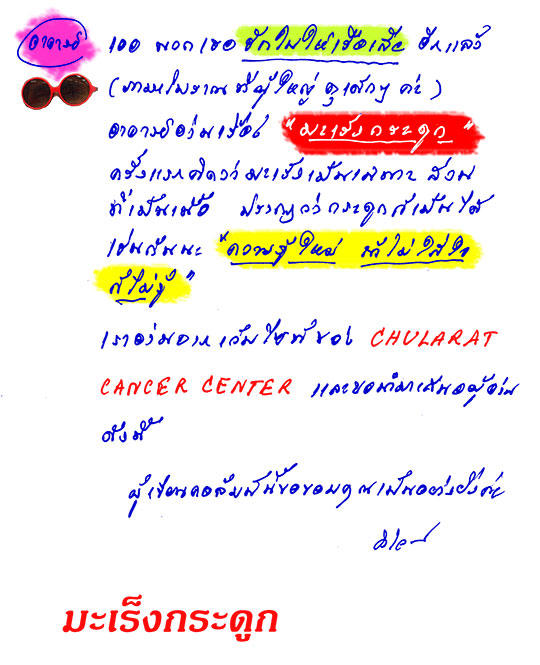 อาจารย์ เออ พวกเธอ ชักใบให้เรือเสีย อีกแล้ว
(ภาษาโบราณ ที่ผู้ใหญ่ ดุเด็กๆ ค่ะ)
อาจารย์อ่านเรื่อง "มะเร็งกระดูก"
ครั้งแรกคิดว่า มะเร็งเป็นเฉพาะ ส่วน
ที่เป็นเนื้อ ปรากฏว่า กระดูกก็เป็นได้
เช่นกันนะ "ความรู้ใหม่ ถ้าไม่ใส่ใจ
ก็ไม่รู้"
เราอ่านจากเว็บไซต์ของ CHULARAT
CANCER CENTER และขอนำมาเสนอผู้อ่าน
ดังนี้
ผู้เขียนคอลัมน์นี้ขอขอบคุณเป็นอย่างยิ่งค่ะ
มะเร็งกระดูก